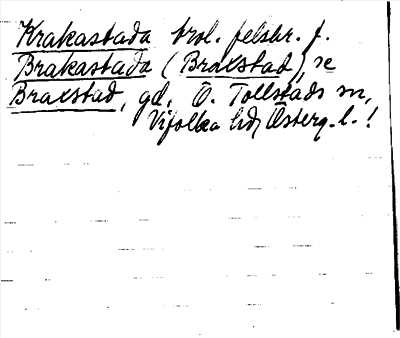 Krakastada trol. felskr. f.
Brakastada (Braxstad), se
Braxstad, gd, Ö. Tollstads sn,
Vifolka hd, Österg. l. !